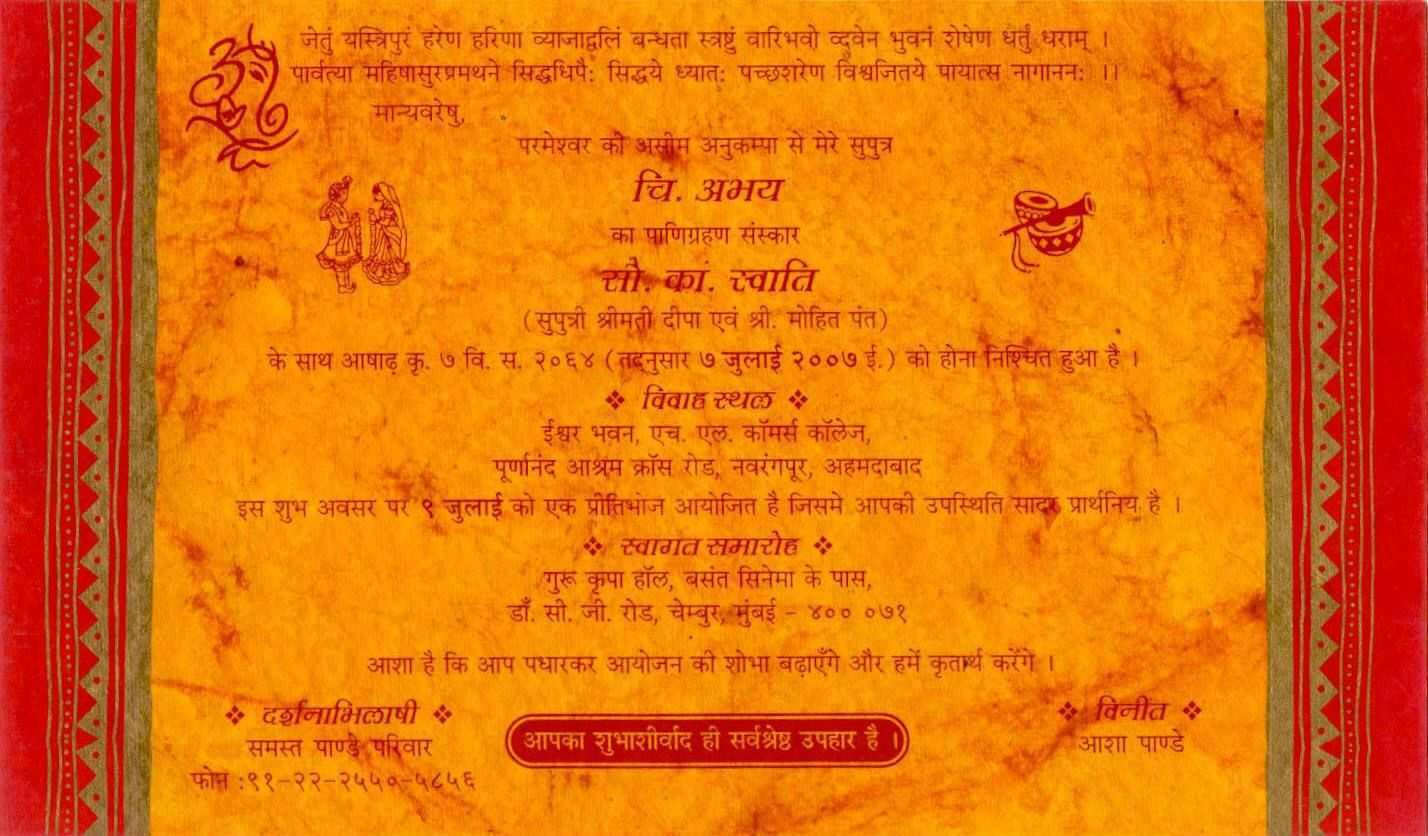 जेतुं यस्त्रिपुरं हरेण हरिणा व्याजाद्वलिं बन्धता स्त्रष्टुं वारिभवो व्द्रवेन भुवनं शेषेण धर्तुं धराम् ।
पार्वत्या महिषासुरप्रमथने सिद्धधिपैः सिद्धये ध्यातः पच्छशरेण विश्वजितये पायात्स नागाननः ।।
मान्यवरेषु,
परमेश्वर की असीम अनुकम्पा से मेरे सुपुत्र
चि. अभय
का पाणिग्रहण संस्कार
सौ. कां. स्वाति
(सुपुत्री श्रीमती दीपा एवं श्री. मोहित पंत)
के साथ आषाढ़ कृ. ७ वि. स. २०६४ (तदनुसार ७ जुलाई २००७ ई.) को होना निश्चित हुआ है ।
❖ विवाह स्थल ❖
ईश्वर भवन, एच. एल. कॉमर्स कॉलेज,
पूर्णानंद आश्रम क्रॉस रोड, नवरंगपूर, अहमदाबाद
इस शुभ अवसर पर ९ जुलाई को एक प्रीतिभोज आयोजित है जिसमे आपकी उपस्थिति सादर प्रार्थनिय है ।
❖ स्वागत समारोह ❖
गुरू कृपा हॉल, बसंत सिनेमा के पास,
डॉ. सी. जी. रोड, चेम्बुर, मुंबई - ४०० ०७१
आशा है कि आप पधारकर आयोजन की शोभा बढ़ाएँगे और हमें कृतार्थ करेंगे ।
❖ दर्शनाभिलाषी ❖
समस्त पाण्डे परिवार
फोन :९१-२२-२५५०-५८५६
आपका शुभाशीर्वाद ही सर्वश्रेष्ठ उपहार है ।
❖ विनीत ❖
आशा पाण्डे